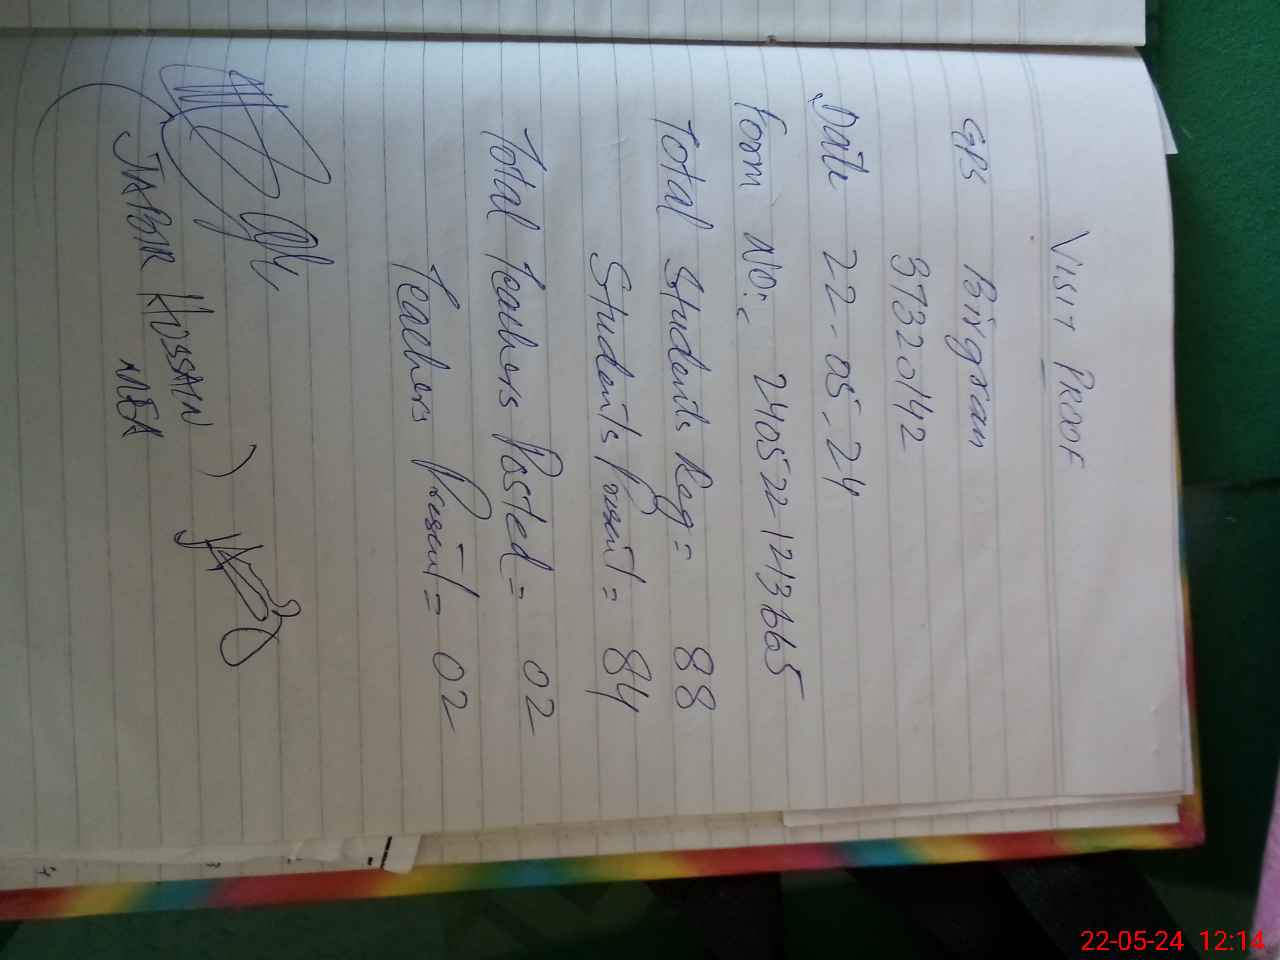 VISIT PROOF
GPS Bingran
37320142
Date 22-05-24
Form NO:- 240522-1213665
Total Students Reg = 88
Students Present = 84
Total Teachers Posted = 02
Teachers Present = 02
JABIR HOSSAIN)
MEA
22-05-24 12:14